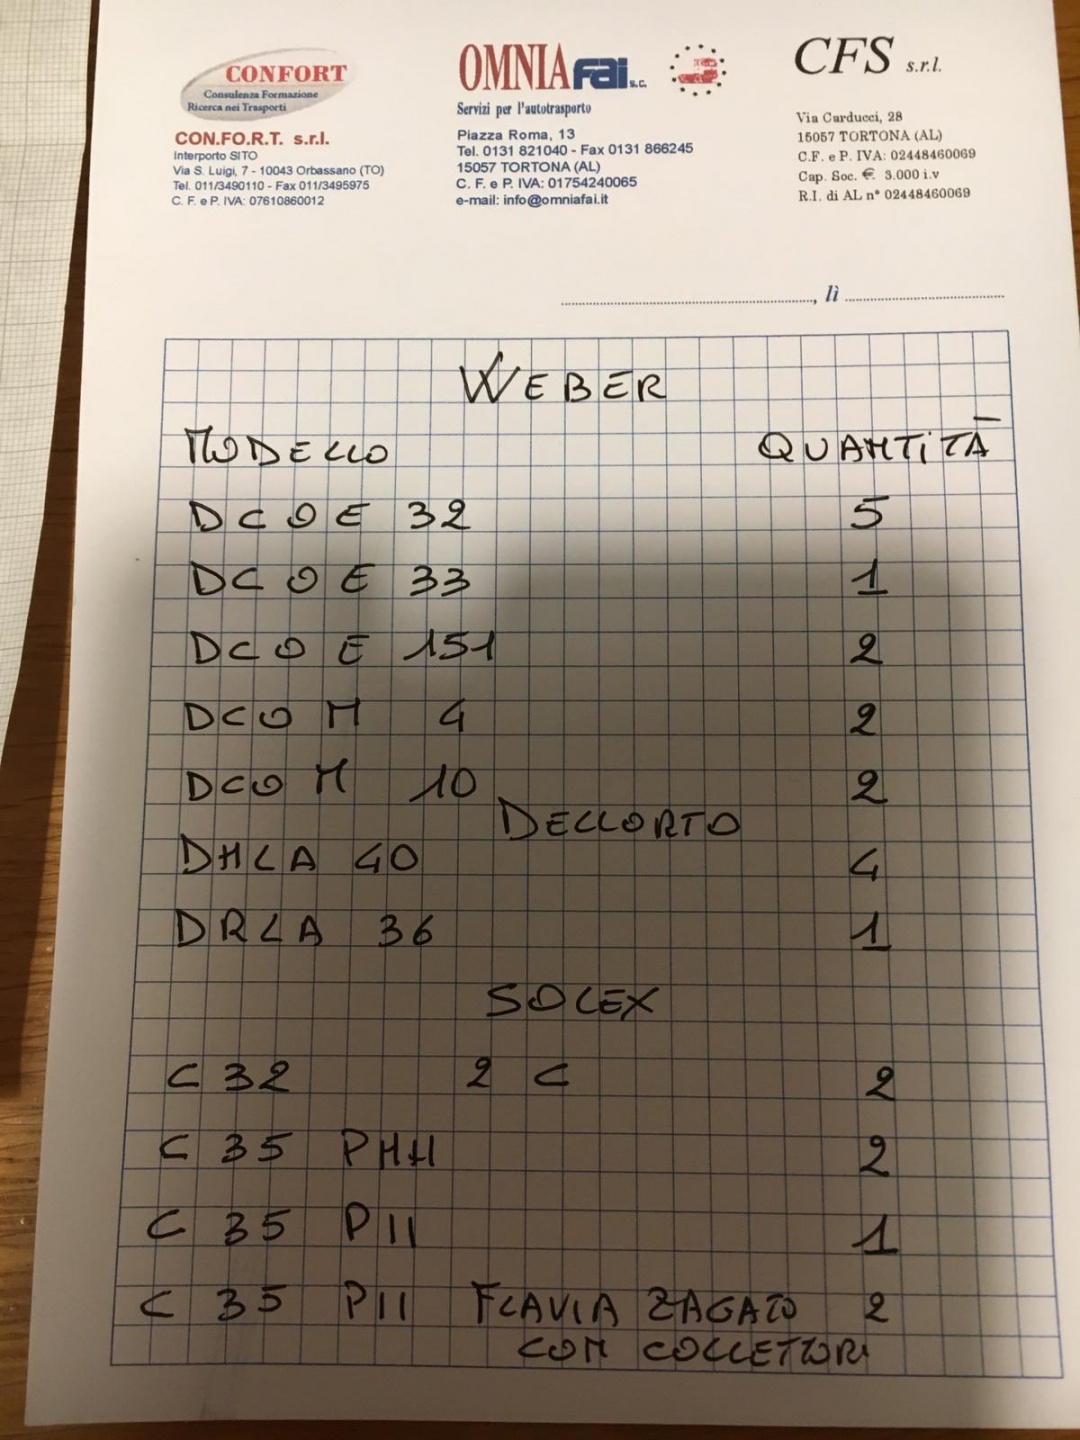 CONFORT
Consulenza Formazione
Ricerca nei Trasporti
CON.FO.R.T. s.r.l.
Interporto SITO
Via S. Luigi, 7 - 10043 Orbassano (TO)
Tel. 011/3490110 - Fax 011/3495975
C. F. e P. IVA: 07610860012
OMNIA FAI s.c.
Servizi per l'autotrasporto
Piazza Roma, 13
Tel. 0131 821040 - Fax 0131 866245
15057 TORTONA (AL)
C. F. e P. IVA: 01754240065
e-mail: info@omniafai.it
CFS s.r.l.
Via Carducci, 28
15057 TORTONA (AL)
C.F. e P. IVA: 02448460069
Cap. Soc. €. 3.000 i.v
R.I. di AL n° 02448460069
, lì
WEBER
MODELLO QUANTITÀ
DCOE 32 5
DCOE 33 1
DCOE 151 2
DCOM 4 2
DCOM 10 2
DELLORTO
DHLA 40 4
DRLA 36 1
SOLEX
C 32 2 C 2
C 35 PHH 2
C 35 PII 1
C 35 PII FLAVIA ZAGATO 2
CON COLLETTORI